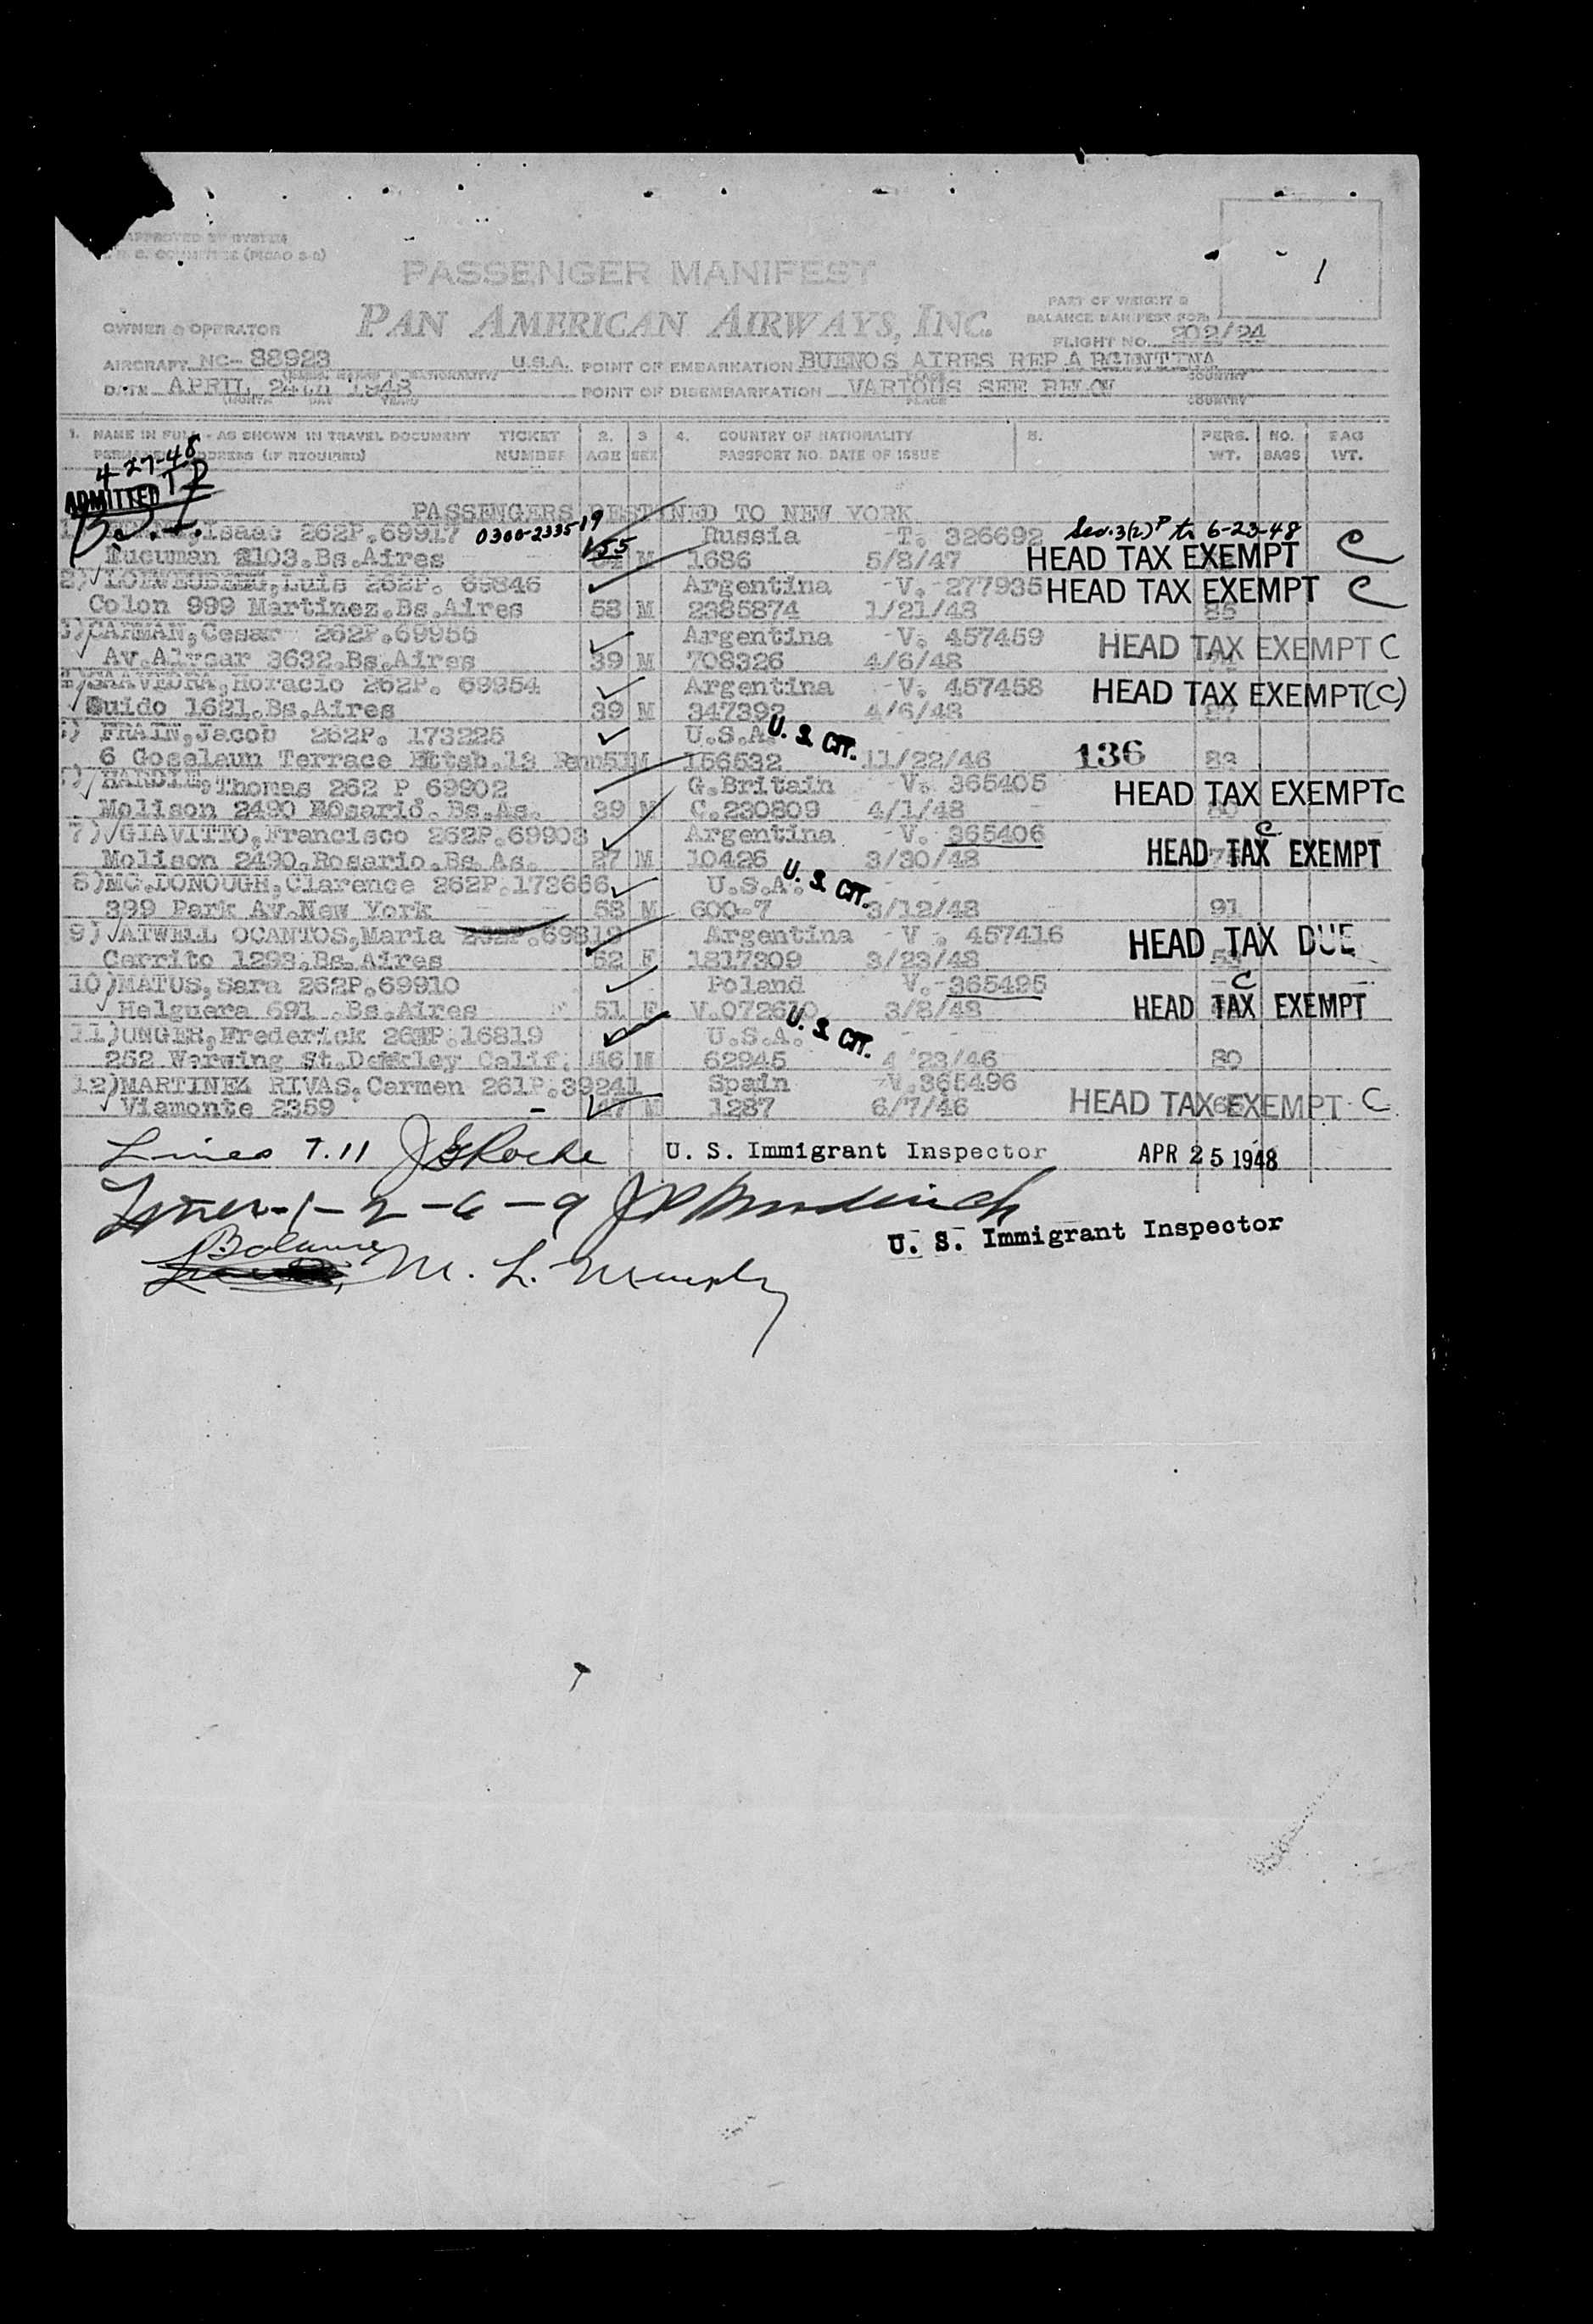 APPROVED BY SYSTEM
PASSENGER MANIFEST
1
PAN AMERICAN AIRWAYS, INC.
PART OF WEIGHT &
BALANCE MANIFEST FOR
OWNER & OPERATOR
FLIGHT NO. 202/24
AIRCRAFT NC- 88923 U.S.A. POINT OF EMBARKATION BUENOS AIRES REP ARGENTINA
DATE APRIL 24th 1948 POINT OF DISEMBARKATION VARIOUS SEE BELOW
MONTH DAY YEAR PLACE COUNTRY
1. NAME IN FULL - AS SHOWN IN TRAVEL DOCUMENT TICKET 2. 3 4. COUNTRY OF NATIONALITY 5. PERS. NO. BAG
PERMANENT ADDRESS (IF REQUIRED) NUMBER AGE SEX PASSPORT NO. DATE OF ISSUE WT. BAGS WT.
4-27-48
ADMITTED
B.S.I.
PASSENGERS DESTINED TO NEW YORK
Isaac 262P.69917 0300-233519 Russia T. 326692 Sec. 3(2) to 6-23-48
Tucuman 2103.Bs.Aires 55 M 1686 5/8/47 HEAD TAX EXEMPT C
2) Luis 262P. 69846 Argentina -V. 277935 HEAD TAX EXEMPT C
Colon 999 Martinez.Bs.Aires 58 M 2385874 1/21/48 86
3) CARMAN,Cesar 262P.69956 Argentina -V. 457459 HEAD TAX EXEMPT C
Av.Alvear 3632.Bs.Aires 39 M 708326 4/6/48
SAAVEDRA,Horacio 262P. 69954 Argentina -V. 457458 HEAD TAX EXEMPT (C)
Guido 1621.Bs.Aires 39 M 347392 4/6/48
FRAIN,Jacob 262P. 173225 U.S.A. U. S. CIT.
6 Terrace 13 Penn 51 M 156532 11/22/46 136
HARDIE,Thomas 262 P 69902 G.Britain V. 365405 HEAD TAX EXEMPT C
Molison 2490 Rosario.Bs.As. 39 M C.230809 4/1/48
7) GIAVITTO,Francisco 262P.69903 Argentina -V. 365406 C
Molison 2490.Rosario.Bs.As. 27 M 10426 3/30/48 HEAD TAX EXEMPT
8) MC.DONOUGH,Clarence 262P.173666 U.S.A. U. S. CIT.
399 Park Av.New York 58 M 600-7 3/12/48 91
9) ATWELL OCANTOS,Maria 262P.69819 Argentina -V . 457416 HEAD TAX DUE
Cerrito 1293.Bs.Aires 52 F 1817309 3/23/48
10) MATUS,Sara 262P.69910 Poland V. 365495 C
Helguera 691 .Bs.Aires 51 F V.072610 3/8/48 HEAD TAX EXEMPT
11) UNGER,Frederick 16819 U.S.A. U. S. CIT.
252 St. Calif. 46 M 62945 4 23/46 80
12) MARTINEZ RIVAS,Carmen 261P.39241 Spain -V.365496
Viamonte 2359 - 47 M 1287 6/7/46 HEAD TAX EXEMPT C
Lines 7.11 J Roche U. S. Immigrant Inspector APR 25 1948
Lines-1-2-6-9
U. S. Immigrant Inspector
Balance M. L. Murphy